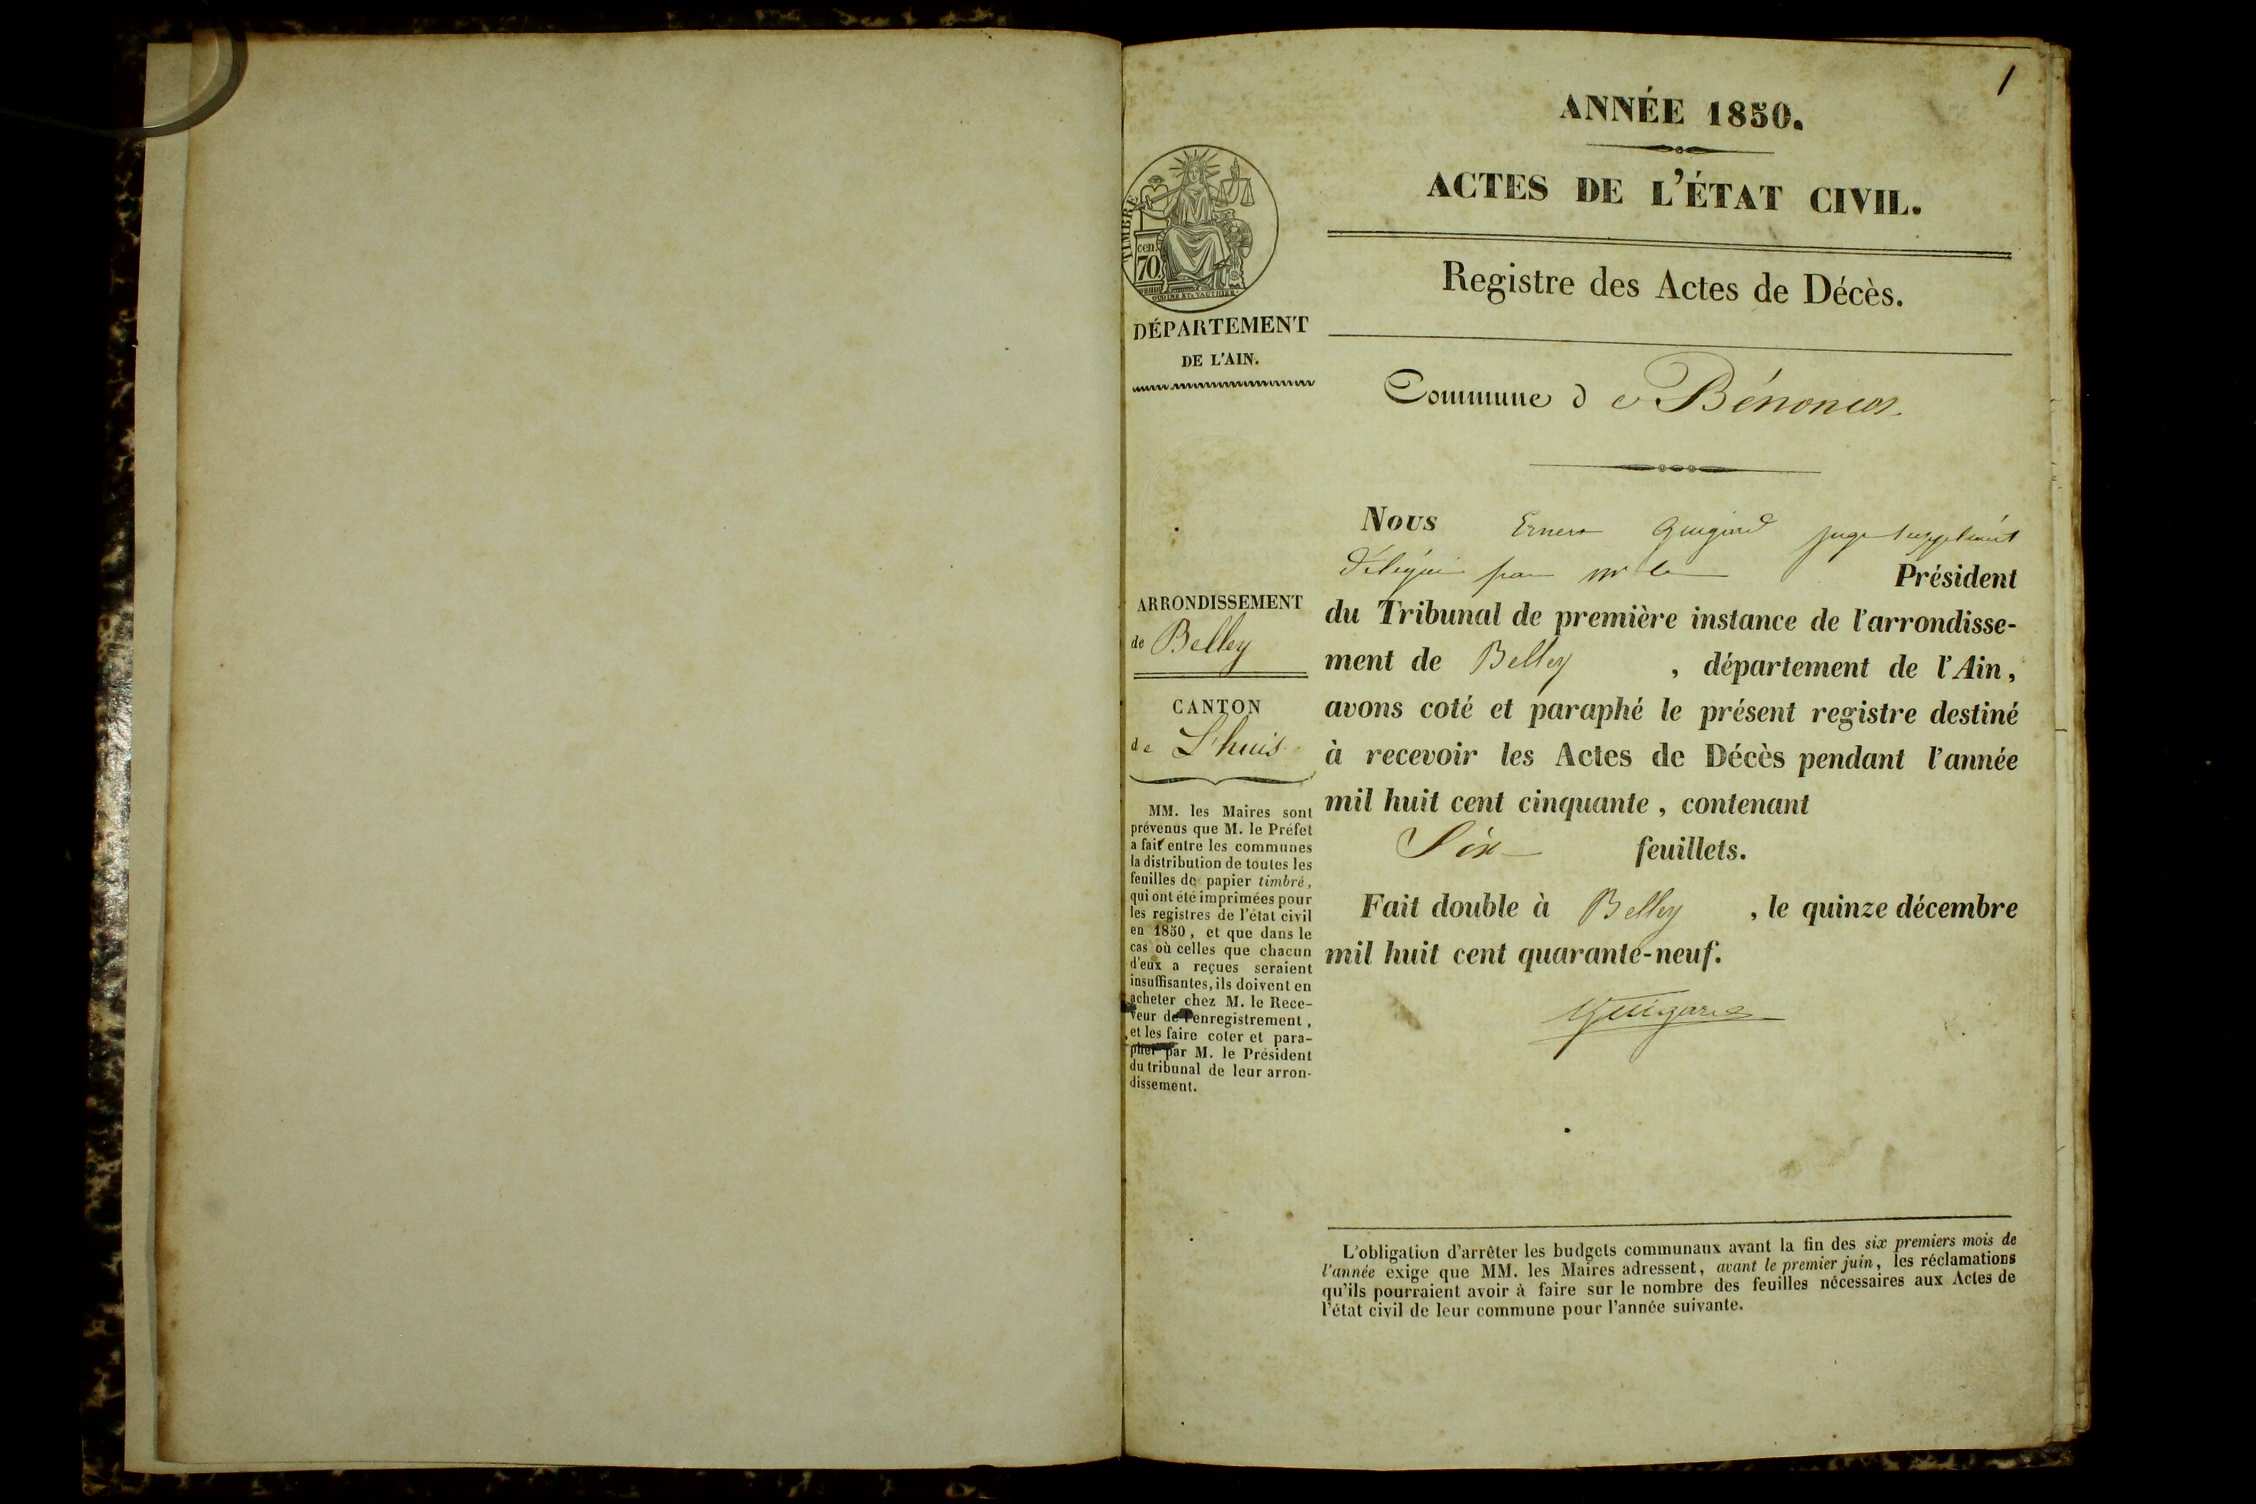 1
ANNÉE 1850.
ACTES DE L'ÉTAT CIVIL.
Registre des Actes de Décès.
TIMBRE
cen.
70
DÉPARTEMENT
DE L'AIN.
Commune de Bénonces
ARRONDISSEMENT
de Belley
CANTON
de L'huis
MM. les Maires sont
prévenus que M. le Préfet
a fait entre les communes
la distribution de toutes les
feuilles de papier timbré,
qui ont été imprimées pour
les registres de l'état civil
en 1850, et que dans le
cas où celles que chacun
d'eux a reçues seraient
insuffisantes, ils doivent en
acheter chez M. le Rece-
veur de l'enregistrement,
et les faire coter et para-
pher par M. le Président
du tribunal de leur arron-
dissement.
Nous Ernest Guigard juge suppléant
délégué par mr le Président
du Tribunal de première instance de l'arrondisse-
ment de Belley, département de l'Ain,
avons coté et paraphé le présent registre destiné
à recevoir les Actes de Décès pendant l'année
mil huit cent cinquante, contenant
Six feuillets.
Fait double à Belley, le quinze décembre
mil huit cent quarante-neuf.
Guigard
L'obligation d'arrêter les budgets communaux avant la fin des six premiers mois de
l'année exige que MM. les Maires adressent, avant le premier juin, les réclamations
qu'ils pourraient avoir à faire sur le nombre des feuilles nécessaires aux Actes de
l'état civil de leur commune pour l'année suivante.